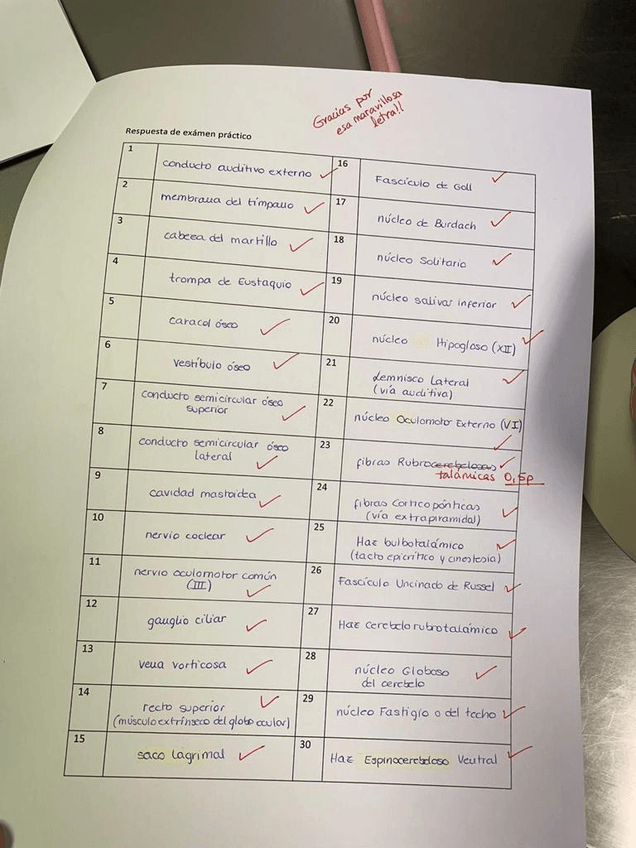 Gracias por
esa maravillosa
letra!!
Respuesta de exámen práctico
1
conducto auditivo externo
2
membrana del tímpano
3
cabeza del martillo
4
trompa de Eustaquio
5
caracol óseo
6
vestíbulo óseo
7
conducto semicircular óseo
superior
8
conducto semicircular óseo
lateral
9
cavidad mastoidea
10
nervio coclear
11
nervio oculomotor común
(III)
12
ganglio ciliar
13
vena vorticosa
14
recto superior
(músculo extrínseco del globo ocular)
15
saco lagrimal
16
Fascículo de Goll
17
núcleo de Burdach
18
núcleo Solitario
19
núcleo salivar inferior
20
núcleo Hipogloso (XII)
21
Lemnisco Lateral
(vía auditiva)
22
núcleo Oculomotor Externo (VI)
23
fibras Rubrocerebelosas
talámicas 0,5p
24
fibras Corticopónticas
(vía extrapiramidal)
25
Haz bulbotalámico
(tacto epicrítico y cinestesia)
26
Fascículo Uncinado de Russel
27
Haz cerebelorubrotalámico
28
núcleo Globoso
del cerebelo
29
núcleo Fastigio o del techo
30
Haz Espinocerebeloso Ventral